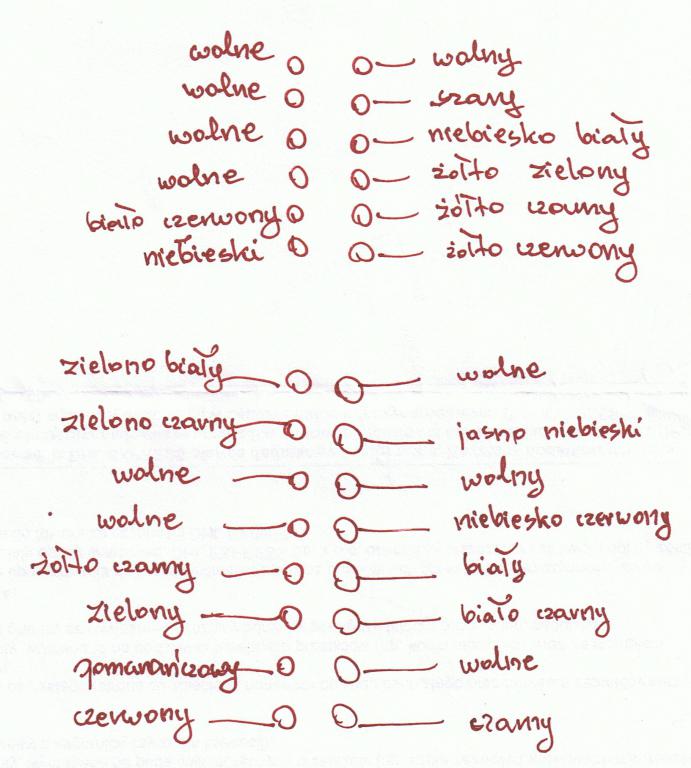 wolne wolny
wolne szary
wolne niebiesko biały
wolne żółto zielony
biało czerwony żółto czarny
niebieski żółto czerwony
zielono biały wolne
zielono czarny jasno niebieski
wolne wolny
wolne niebiesko czerwony
żółto czarny biały
zielony biało czarny
pomarańczowy wolne
czerwony czarny